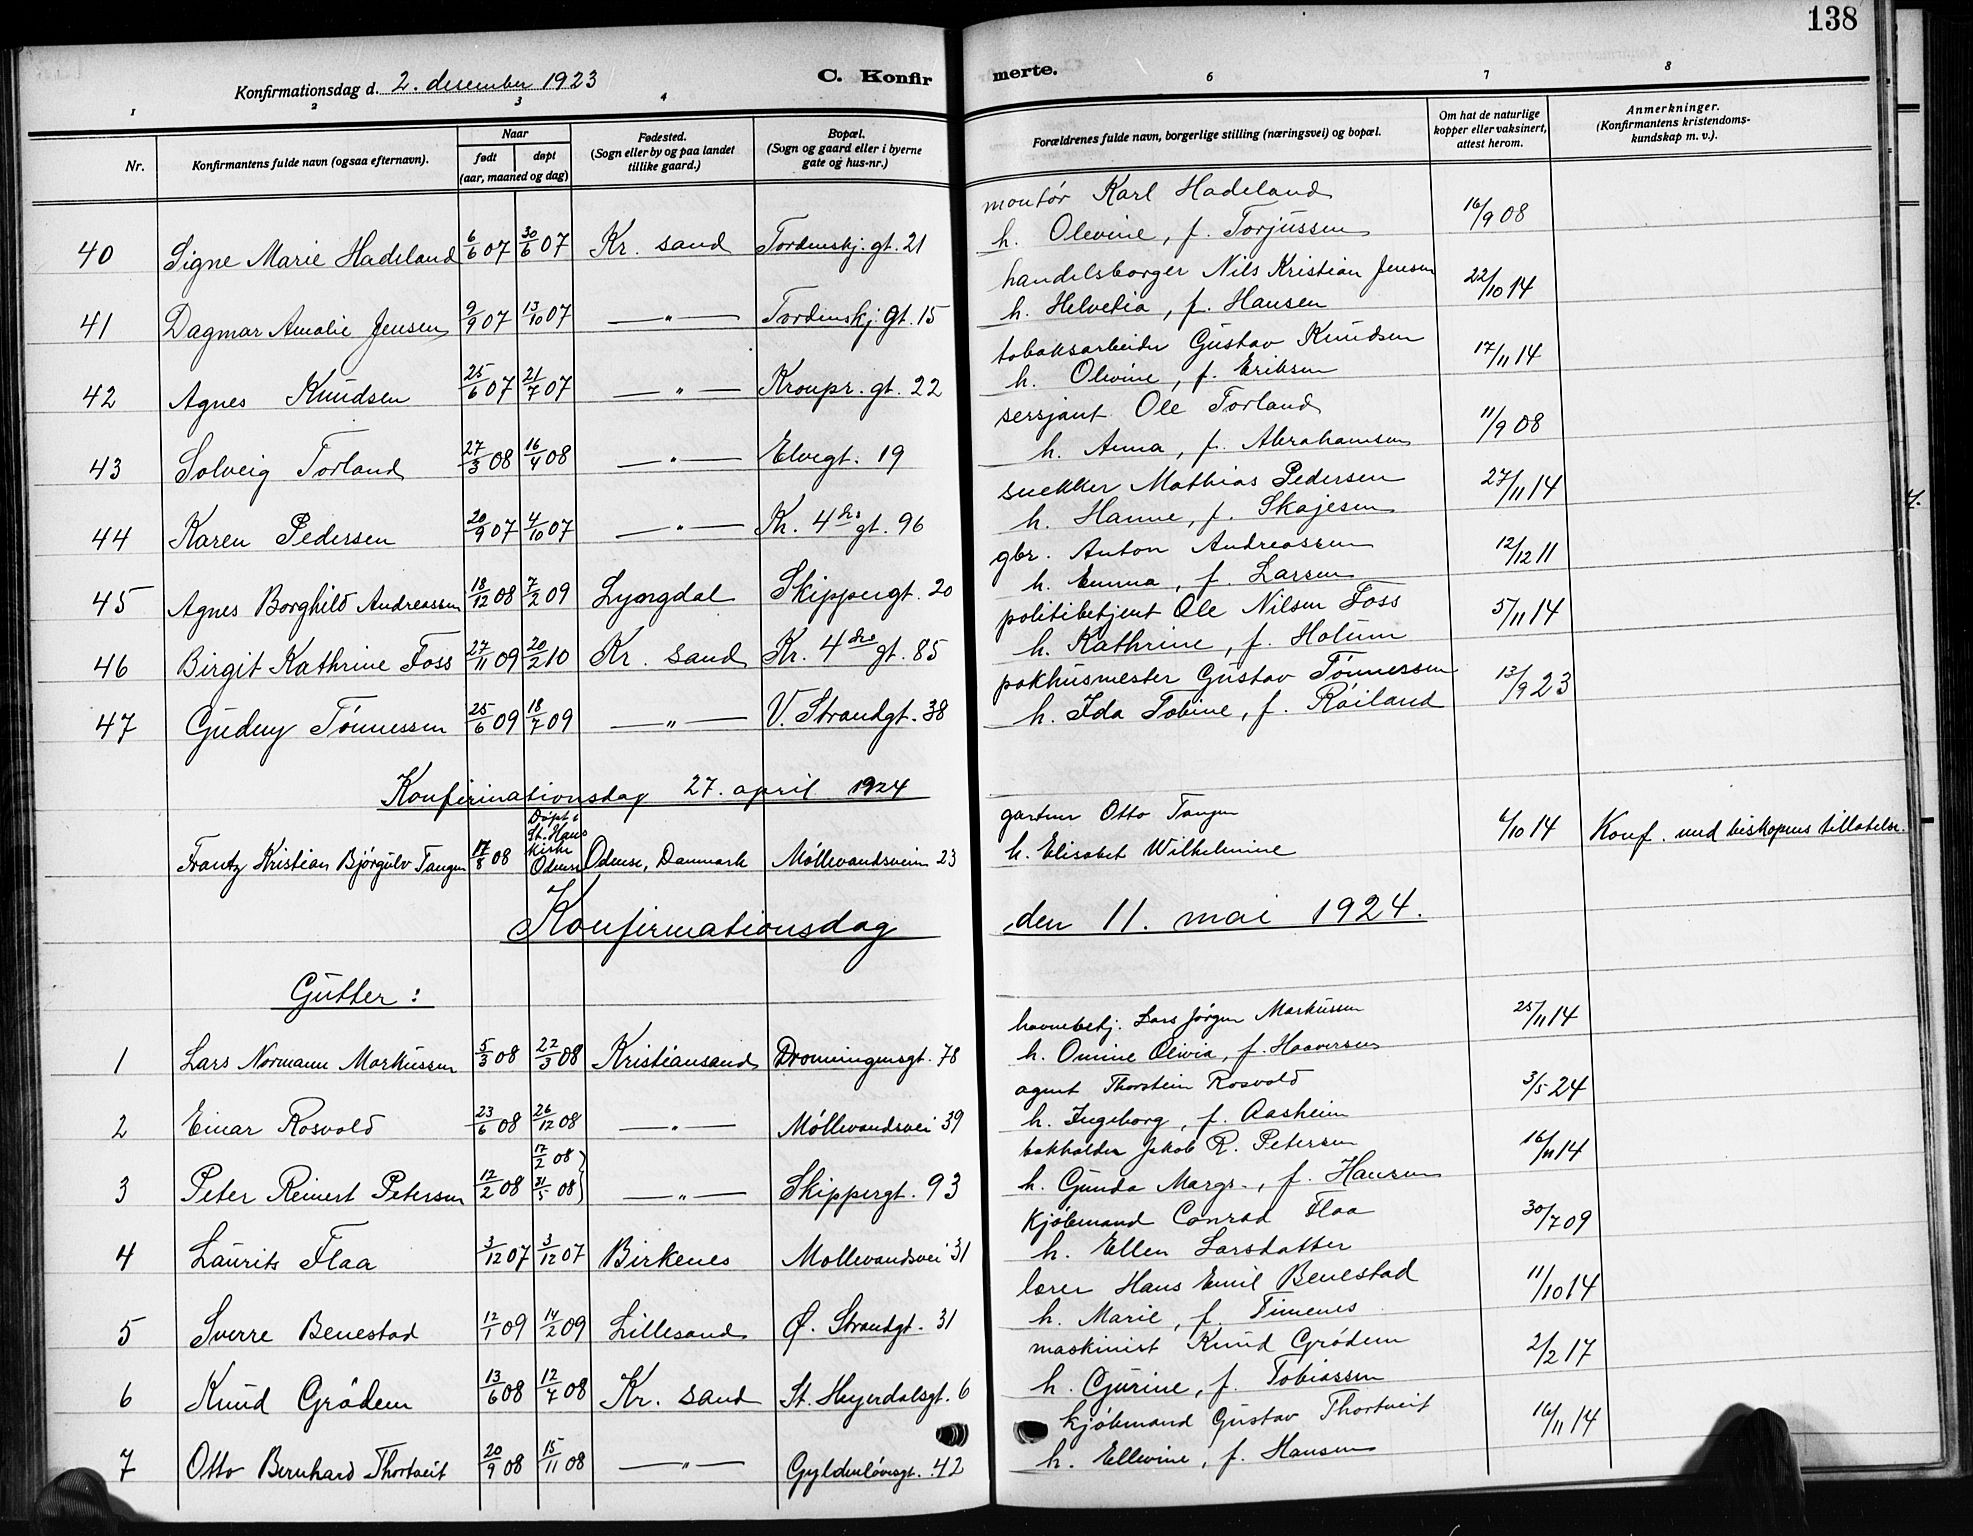 138
Konfirmationsdag d. 2. desember 1923
C. Konfirmerte.
1 2 3 4 6 7 8
Nr.
Konfirmantens fulde navn (ogsaa efternavn).
Naar
født
døpt
(aar, maaned og dag)
Fødested.
(Sogn eller by og paa landet
tillike gaard.)
Bopæl.
(Sogn og gaard eller i byerne
gate og hus-nr.)
Forældrenes fulde navn, borgerlige stilling (næringsvei) og bopæl.
Om hat de naturlige
kopper eller vaksinert,
attest herom.
Anmerkninger.
(Konfirmantens kristendoms-
kundskap m. v.).
montør Karl Hadeland
40 Signe Marie Hadeland 6/6 07 30/6 07 Kr. sand Tordenskj. gt. 21 h. Olevine, f. Torjussen 16/9 08
handelsborger Nils Kristian Jensen
41 Dagmar Amalie Jensen 9/9 07 13/10 07 — " — Tordenskj. gt. 15 h. Helvetia, f. Hansen 22/10 14
tobaksarbeider Gustav Knudsen
42 Agnes Knudsen 25/6 07 21/7 07 — " — Kronpr. gt. 22 h. Olevine, f. Eriksen 17/11 14
sersjant Ole Torland
43 Solveig Torland 27/3 08 16/4 08 — " — Elvegt. 19 h. Anna, f. Abrahamsen 11/9 08
snekker Mathias Pedersen
44 Karen Pedersen 20/9 07 4/10 07 — " — Kr. 4 des gt. 96 h. Hanne, f. Skajesen 27/11 14
gbr. Anton Andreassen
45 Agnes Borghild Andreassen 18/12 08 7/2 09 Lyngdal Skippergt. 20 h. Emma, f. Larsen 12/12 11
politibetjent Ole Nilsen Foss
46 Birgit Kathrine Foss 27/11 09 20/2 10 Kr. sand Kr. 4 des gt. 85 h. Kathrine, f. Holum 5/11 14
pakhusmester Gustav Tønnessen
47 Gudny Tønnessen 25/6 09 18/7 09 — " — V. Strandgt. 38 h. Ida Tobine, f. Røiland 13/9 23
Konfirmationsdag 27. april 1924
gartner Otto Tangen
Frantz Kristian Bjørgulv Tangen 17/8 08 Døpt i St. Hans kirke Odense Odense, Danmark Møllevandsveien 23 h. Elisabet Wilhelmine 6/10 14 Konf. med biskopens tillatelse.
Konfirmationsdag den 11. mai 1924.
Gutter :
havnebetj. Lars Jørgen Markussen
1 Lars Normann Markussen 5/3 08 22/3 08 Kristiansand Dronningensgt. 78 h. Omine Olivia, f. Haaversen 25/11 14
agent Thorstein Rosvold
2 Einar Rosvold 23/6 08 26/12 08 — " — Møllevandsvei 39 h. Ingeborg, f. Aasheim 3/5 24
bokholder Jakob R. Petersen
3 Peter Reinert Petersen 12/2 08 17/2 08 } 31/5 08 } — " — Skippergt. 93 h. Gunda Margr., f. Hansen 16/11 14
Kjøbmand Conrad Flaa
4 Laurits Flaa 3/12 07 3/12 07 Birkenes Møllevandsvei 31 h. Ellen Larsdatter 30/7 09
lærer Hans Emil Benestad
5 Sverre Benestad 12/1 09 14/2 09 Lillesand Ø. Strandgt. 31 h. Marie, f. Timenes 11/10 14
maskinist Knud Grødem
6 Knud Grødem 13/6 08 12/7 08 Kr. sand St. Heyerdalsgt. 6 h. Gurine, f. Tobiassen 2/2 17
kjøbmand Gustav Thortveit
7 Otto Bernhard Thortveit 20/9 08 15/11 08 — " — Gyldenløvesgt. 42 h. Ellevine, f. Hansen 16/11 14